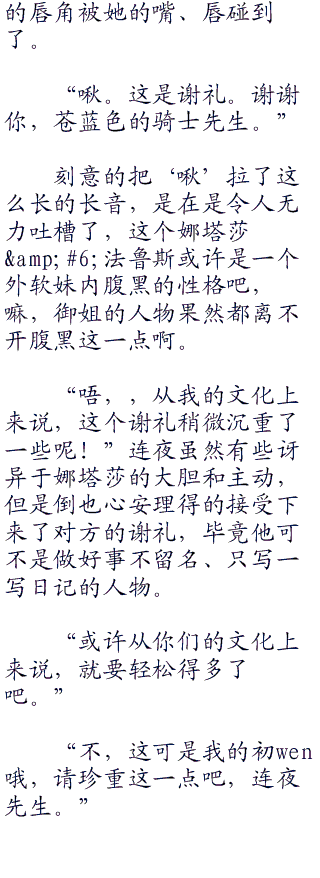 的唇角被她的嘴、唇碰到
了。
“啾。这是谢礼。谢谢
你，苍蓝色的骑士先生。”
刻意的把‘啾’拉了这
么长的长音，是在是令人无
力吐槽了，这个娜塔莎
&amp;#6;法鲁斯或许是一个
外软妹内腹黑的性格吧，
嘛，御姐的人物果然都离不
开腹黑这一点啊。
“唔，，从我的文化上
来说，这个谢礼稍微沉重了
一些呢！”连夜虽然有些讶
异于娜塔莎的大胆和主动，
但是倒也心安理得的接受下
来了对方的谢礼，毕竟他可
不是做好事不留名、只写一
写日记的人物。
“或许从你们的文化上
来说，就要轻松得多了
吧。”
“不，这可是我的初wen
哦，请珍重这一点吧，连夜
先生。”